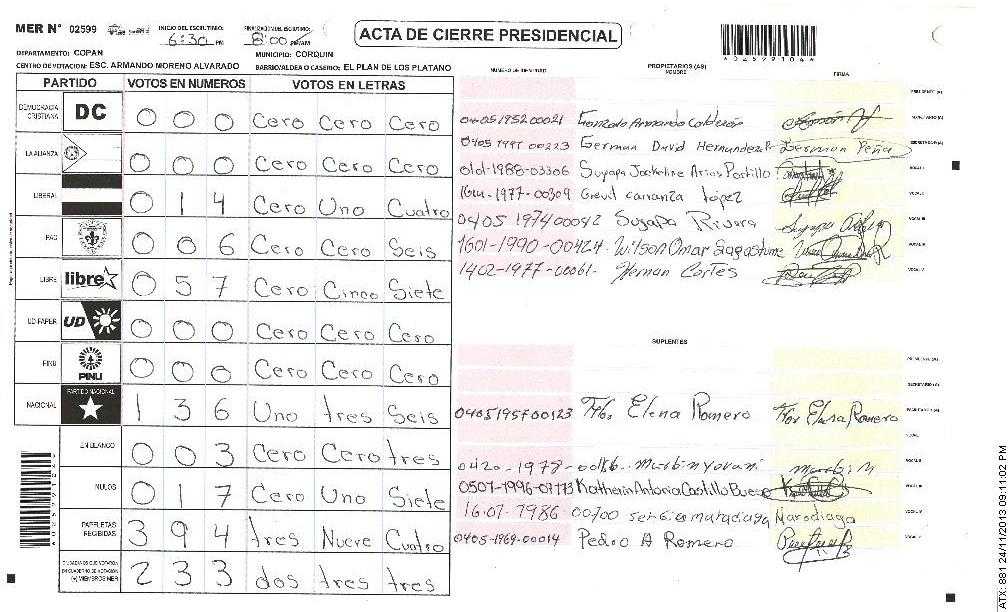 MER N° 02599
INICIO DEL ESCRUTINIO: 6:30 PM
FINALIZACION DEL ESCRUTINIO: 8:00 PM/AM
ACTA DE CIERRE PRESIDENCIAL
DEPARTAMENTO: COPAN
MUNICIPIO: CORQUIN
CENTRO DE VOTACION: ESC. ARMANDO MORENO ALVARADO BARRIO/ALDEA O CASERIO: EL PLAN DE LOS PLATANO
PARTIDO VOTOS EN NUMEROS VOTOS EN LETRAS
DEMOCRACIA CRISTIANA DC 0 0 0 Cero Cero Cero
LA ALIANZA 0 0 0 Cero Cero Cero
LIBERAL 0 1 4 Cero Uno Cuatro
PAC 0 0 6 Cero Cero Seis
LIBRE libre 0 5 7 Cero Cinco Siete
UD-FAPER UD 0 0 0 Cero Cero Cero
PINU PINU 0 0 0 Cero Cero Cero
NACIONAL PARTIDO NACIONAL 1 3 6 Uno tres Seis
EN BLANCO 0 0 3 Cero Cero tres
NULOS 0 1 7 Cero Uno Siete
PAPELETAS RECIBIDAS 3 9 4 tres Nueve Cuatro
CIUDADANOS QUE VOTARON EN CUADERNO DE VOTACION (+) MIEMBROS MER 2 3 3 dos tres tres
PROPIETARIOS (AS)
NUMERO DE IDENTIDAD NOMBRE FIRMA
PRESIDENTE (A)
0405195200021 Gonzalo Armando Calderón
0405 1997 00223 German David Hernandez German Peña SECRETARIO (A)
0101-1988-03306 Suyapa Jackeline Arias Portillo VOCAL I
1977-00309 López VOCAL II
0405 1974 00042 Suyapa Rivera VOCAL III
1601-1990-00424 Wilson Omar Sagastume
1402-1977-00061 Hernan Cortes VOCAL V
SUPLENTES
PRESIDENTE (A)
SECRETARIO (A)
Elena Romero Romero
VOCAL I
0420-1978- VOCAL II
0507-1996-07773 Katherin Antonia Castillo Bueso VOCAL III
00700 Maradiaga VOCAL IV
0405-1969-00014 Pedro A Romero VOCAL V
ATX: 881 24/11/2013 09:11:02 PM